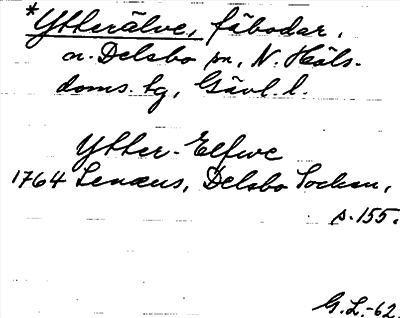 *Ytterälve, fäbodar,
n. Delsbo sn, N. Häls.
doms. tg, Gävl. l.
Ytter-Elfwe
1764 Lenæus, Delsbo Socken,
s. 155.
G. L. -62.